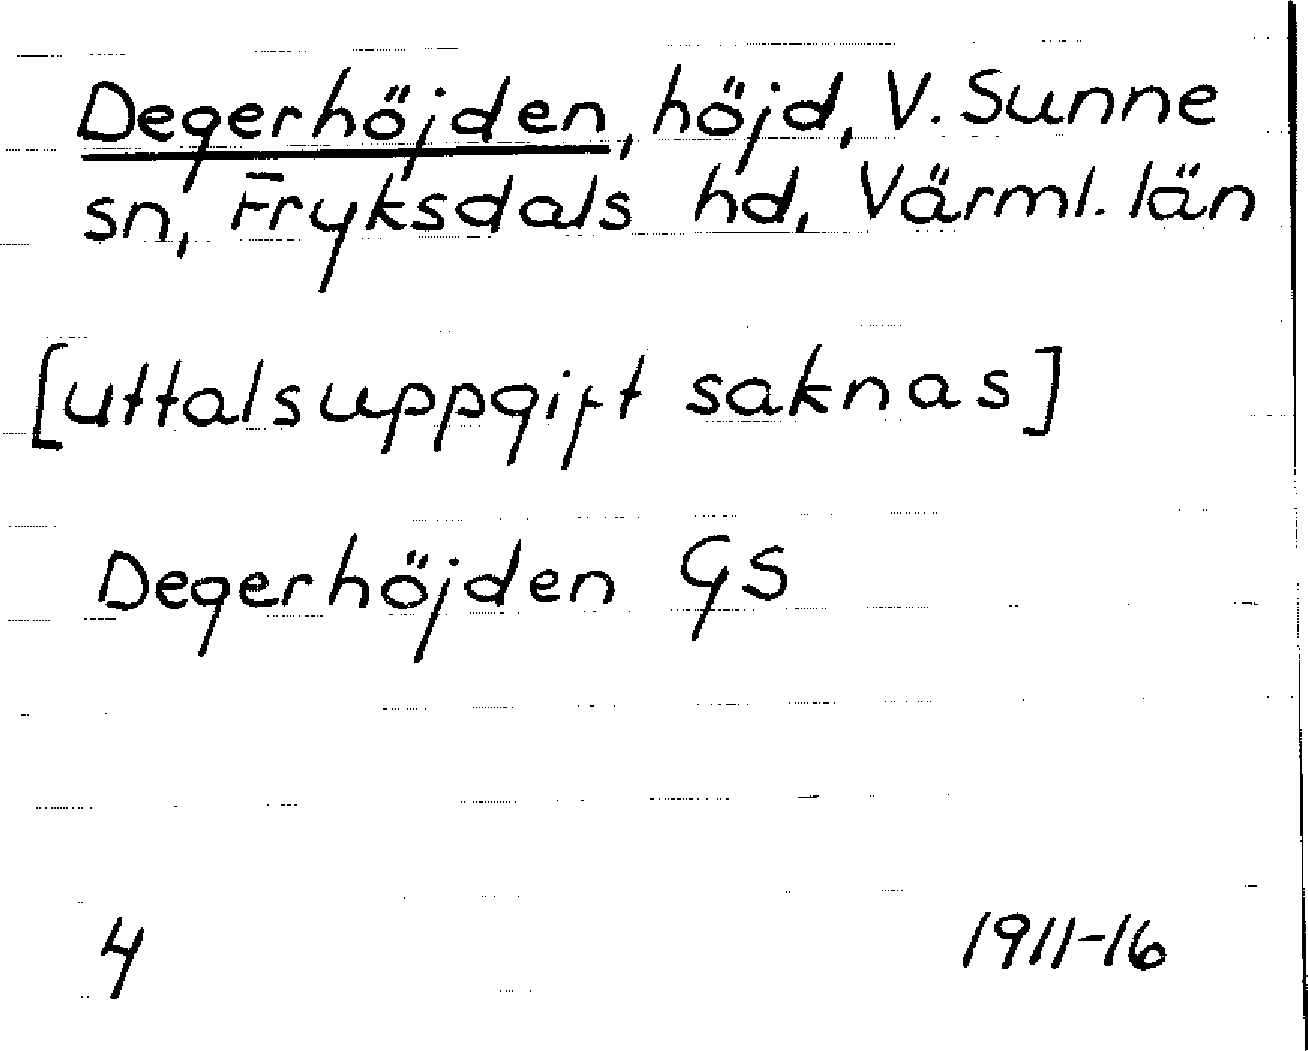 Degerhöjden, höjd, V. Sunne
sn, Fryksdals hd, Värml. län
[uttalsuppgift saknas]
Degerhöjden GS
4 1911-16